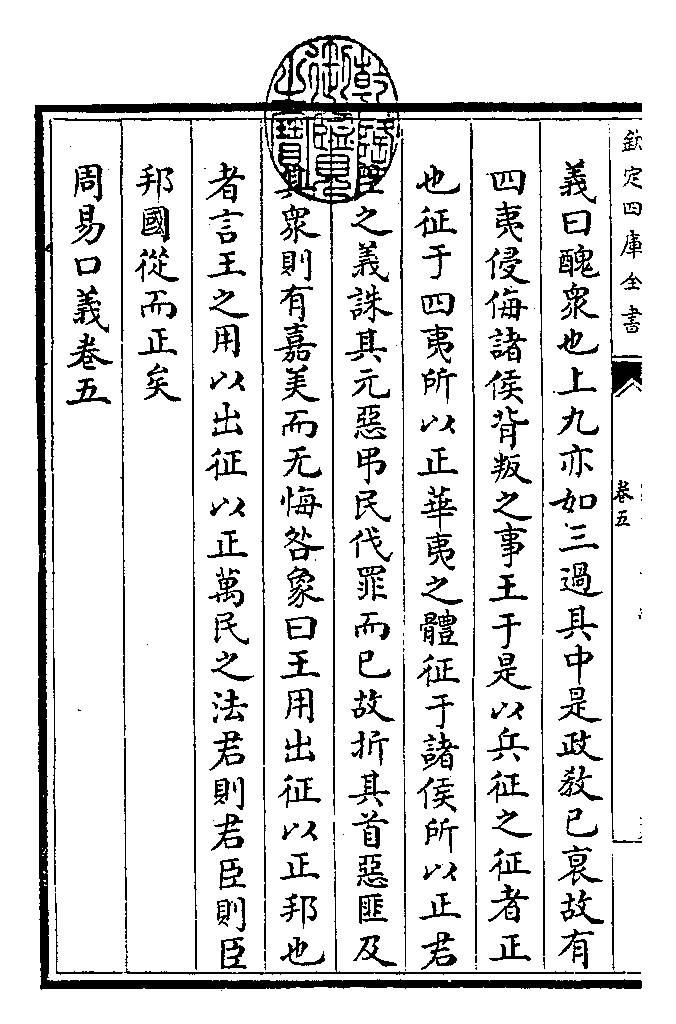 欽定四庫全書
卷五
義曰醜衆也上九亦如三過其中是政教已衰故有
四夷侵侮諸侯背叛之事王于是以兵征之征者正
也征于四夷所以正華夷之體征于諸侯所以正君
臣之義誅其元惡弔民伐罪而已故折其首惡匪及
其衆則有嘉美而无悔咎象曰王用出征以正邦也
者言王之用以出征以正萬民之法君則君臣則臣
邦國從而正矣
周易口義卷五
乾隆御覽之寶